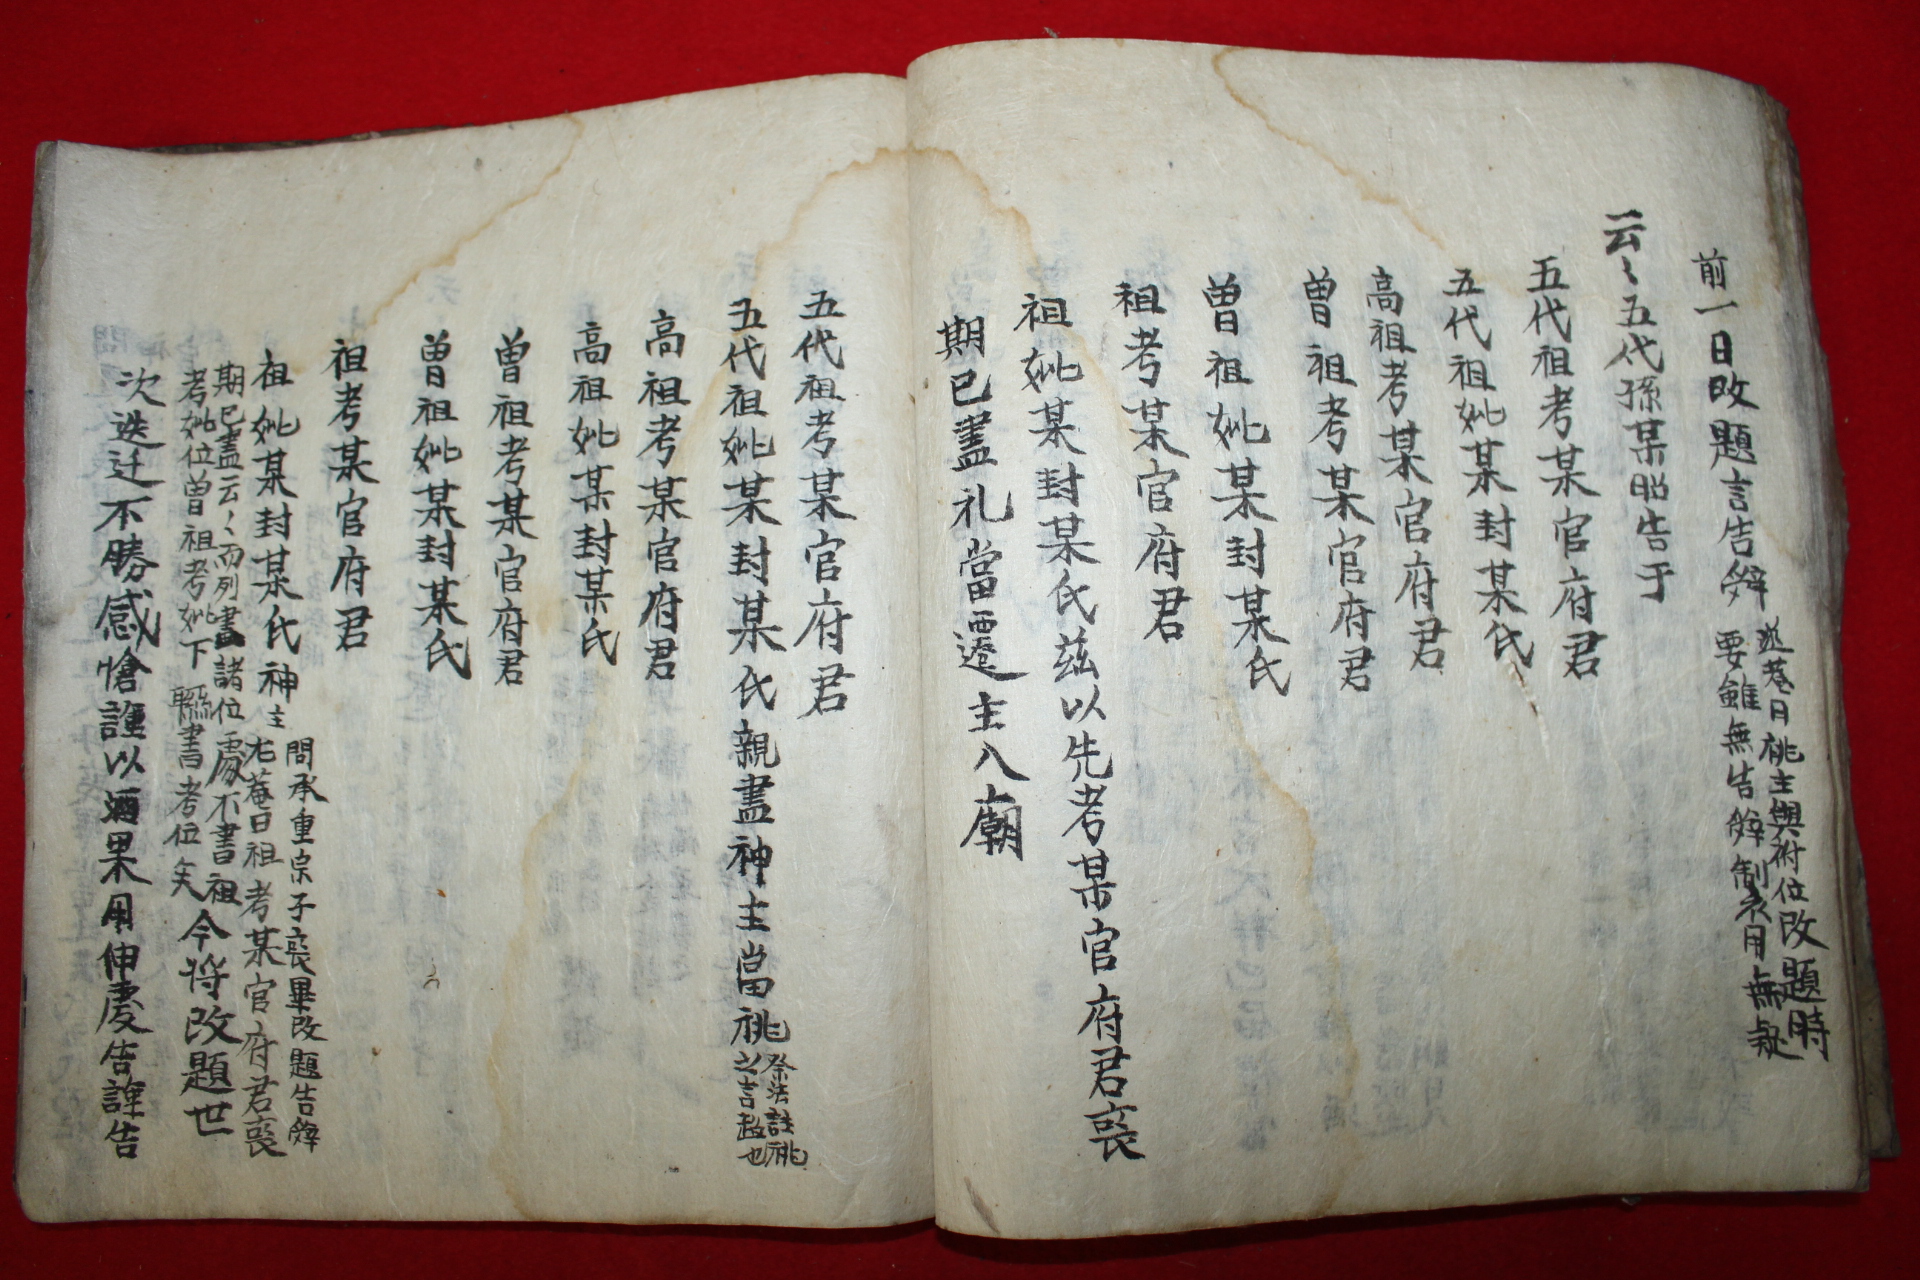 前一日改題言告辭
逃菴曰祧主與祔位改題時
要雖無告辭制衣用無疑
云〻五代孫某昭告于
五代祖考某官府君
五代祖妣某封某氏
高祖考某官府君
曾祖考某官府君
曾祖妣某封某氏
祖考某官府君
祖妣某封某氏茲以先考某官府君喪
期已盡礼當遷主入廟
五代祖考某官府君
五代祖妣某封某氏親盡神主當祧
祭法註祧
之言超也
高祖考某官府君
高祖妣某封某氏
曾祖考某官府君
曾祖妣某封某氏
祖考某官府君
祖妣某封某氏神主
問承重宗子喪畢改題告辭
尤菴曰祖考某官府君喪
期已盡云〻而列書諸位處不書祖
考妣位曾祖考妣下聯書考位矣
今將改題世
次迭迁不勝感愴謹以酒果用伸虔告謹告